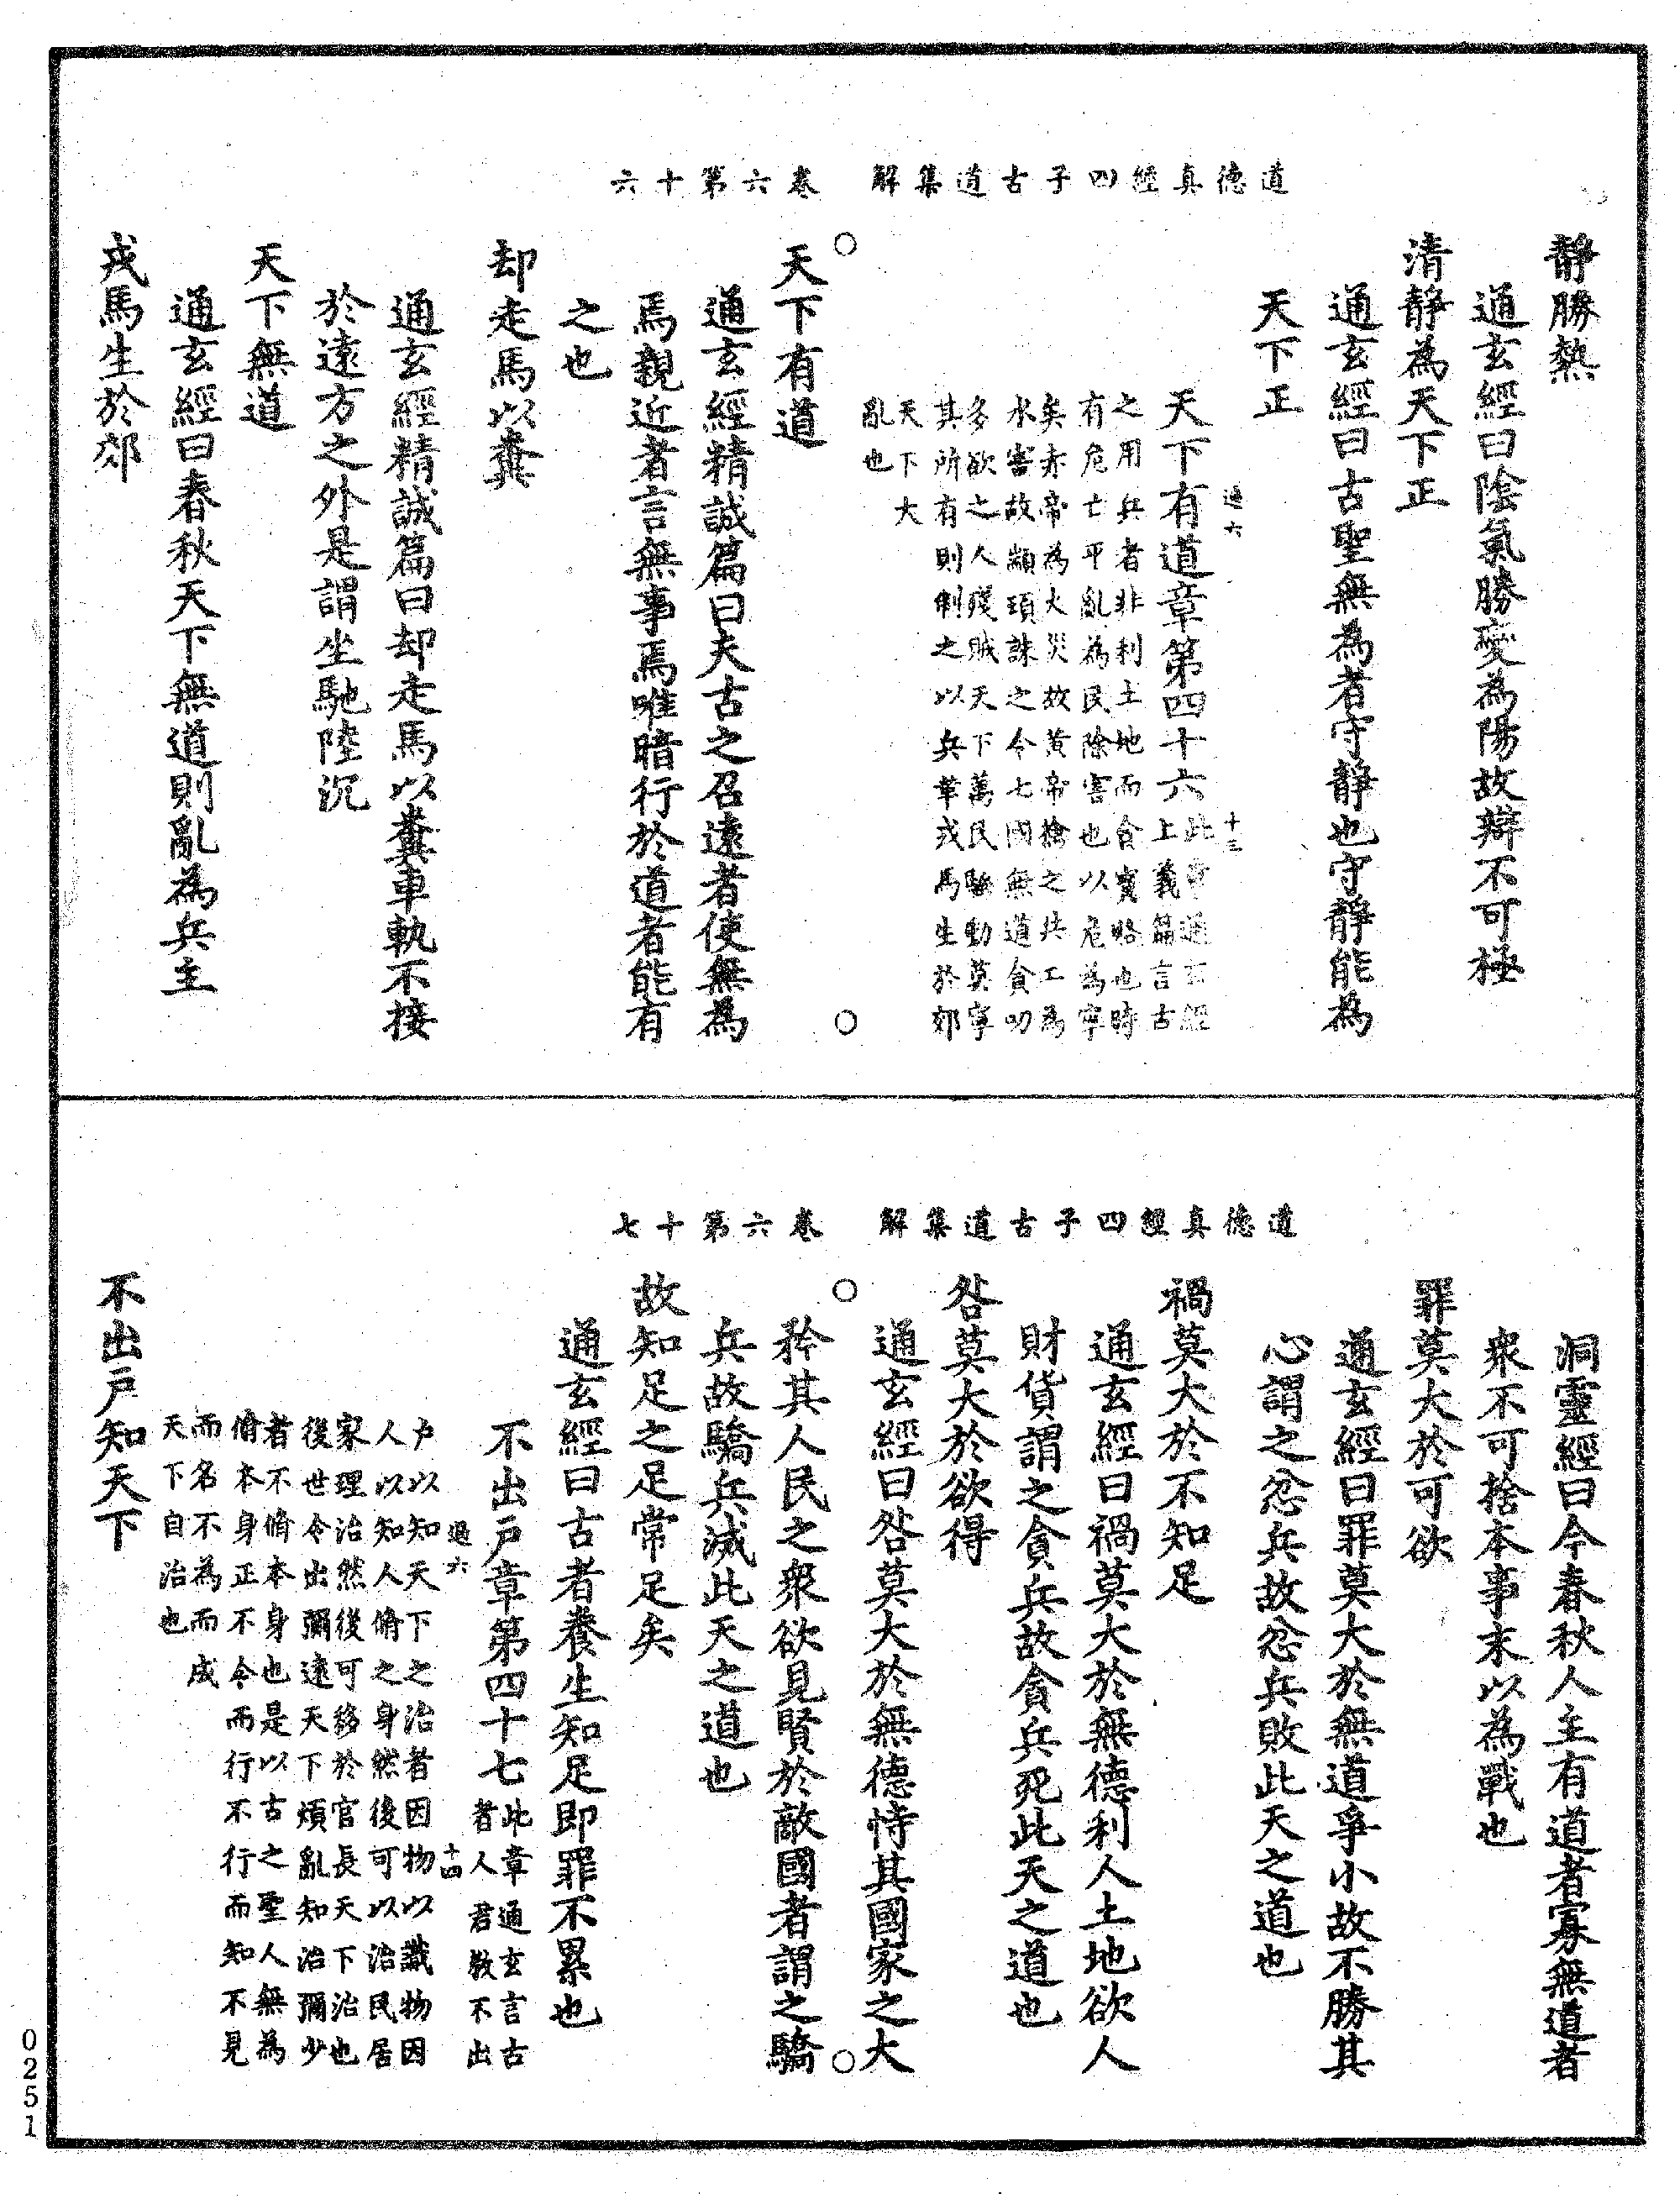 道德真經四子古道集解　卷六第十六
靜勝熱
通玄經曰陰氣勝變為陽故辯不可極
清靜為天下正
通玄經曰古聖無為者守靜也守靜能為
天下正
過六
十三
天下有道章第四十六此章通玄經
上義篇言古
之用兵者非利土地而貪寶賂也時
有危亡平亂為民除害也以危為寧
矣赤帝為火災故黃帝擒之共工為
水害故顓頊誅之今七國無道貪叨
多欲之人殘賊天下萬民騷動莫寧
其所有則制之以兵革戎馬生於郊
天下大
亂也
天下有道
通玄經精誠篇曰夫古之召遠者使無為
焉親近者言無事焉唯暗行於道者能有
之也
却走馬以糞
通玄經精誠篇曰却走馬以糞車軌不接
於遠方之外是謂坐馳陸沉
天下無道
通玄經曰春秋天下無道則亂為兵主
戎馬生於郊
道德真經四子古道集解　卷六第十七
洞靈經曰今春秋人主有道者寡無道者
衆不可捨本事末以為戰也
罪莫大於可欲
通玄經曰罪莫大於無道爭小故不勝其
心謂之忿兵故忿兵敗此天之道也
禍莫大於不知足
通玄經曰禍莫大於無德利人土地欲人
財貨謂之貪兵故貪兵死此天之道也
咎莫大於欲得
通玄經曰咎莫大於無德恃其國家之大
矜其人民之衆欲見賢於敵國者謂之驕
兵故驕兵滅此天之道也
故知足之足常足矣
通玄經曰古者養生知足即罪不累也
不出戶章第四十七此章通玄言古
者人君教不出
過六
十四
戶以知天下之治者因物以識物因
人以知人脩之身然後可以治民居
家理治然後可移於官長天下治也
後世令出彌遠天下煩亂知治彌少
者不脩本身也是以古之聖人無為
脩本身正不令而行不行而知不見
而名不為而成
天下自治也
不出戶知天下
0251